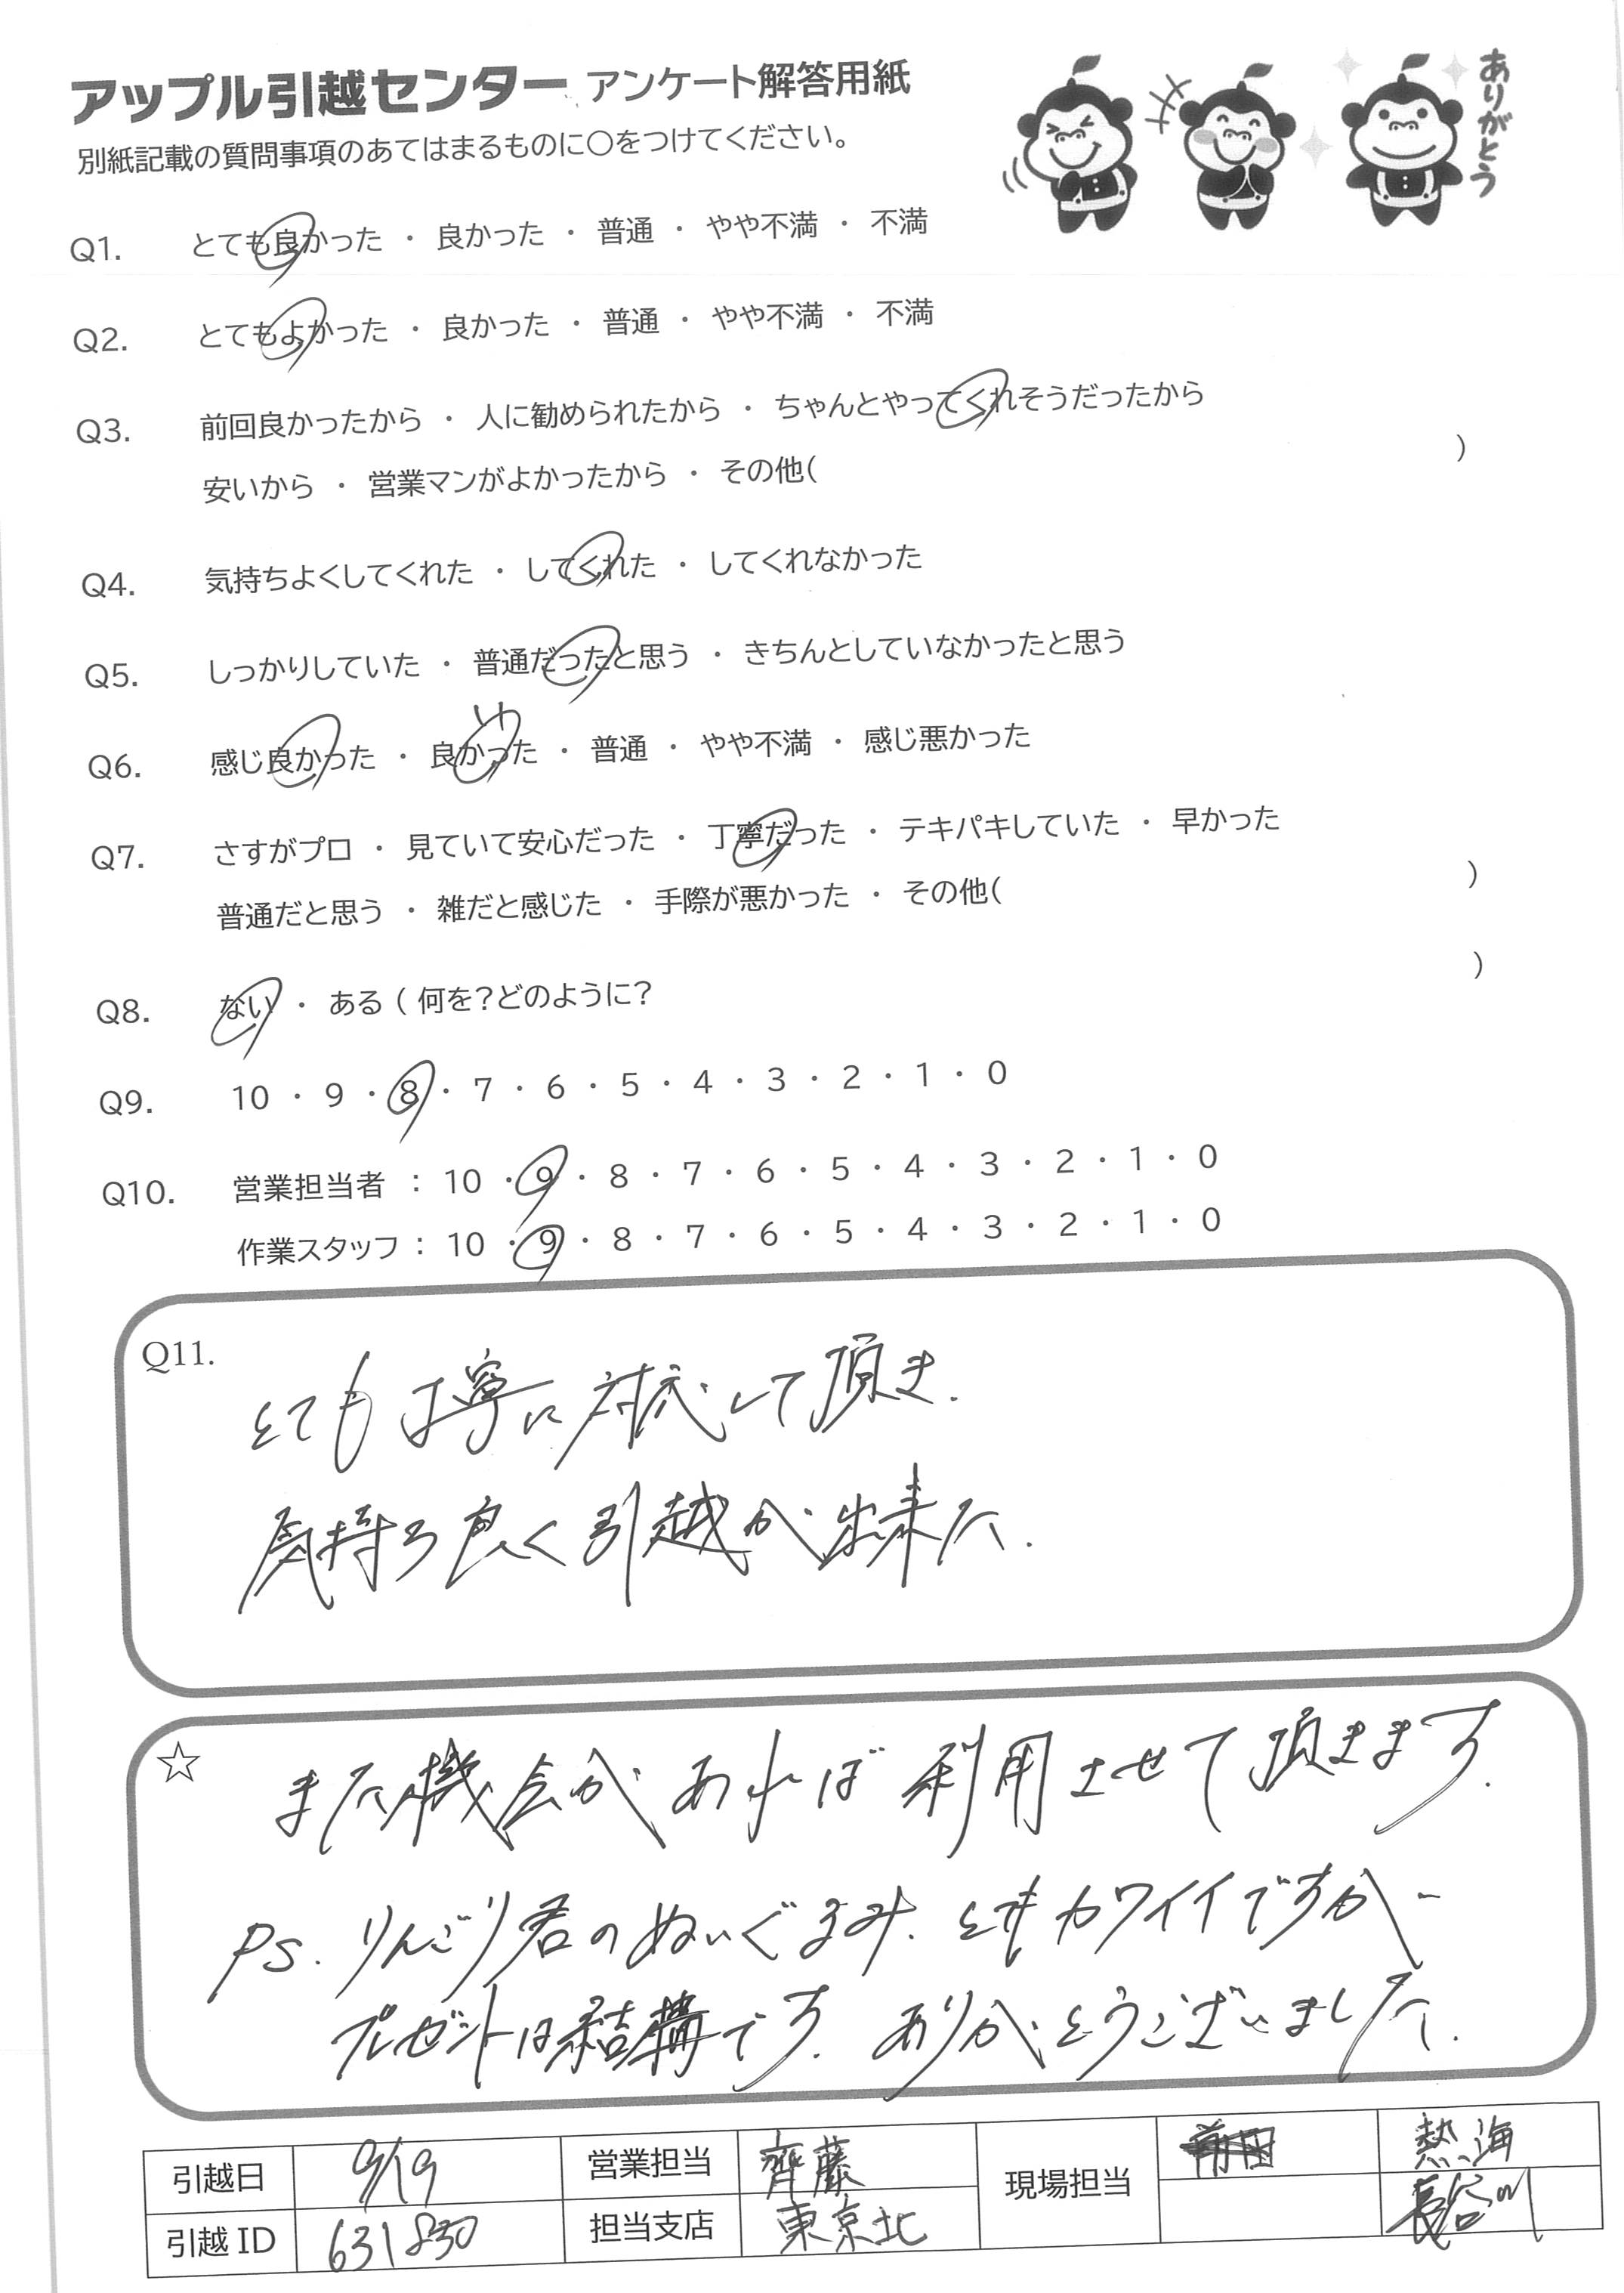 アップル引越センター アンケート解答用紙
ありがとう
別紙記載の質問事項のあてはまるものに○をつけてください。
Q1. とても良かった ・ 良かった ・ 普通 ・ やや不満 ・ 不満
Q2. とてもよかった ・ 良かった ・ 普通 ・ やや不満 ・ 不満
Q3. 前回良かったから ・ 人に勧められたから ・ ちゃんとやってくれそうだったから
安いから ・ 営業マンがよかったから ・ その他( )
Q4. 気持ちよくしてくれた ・ してくれた ・ してくれなかった
Q5. しっかりしていた ・ 普通だったと思う ・ きちんとしていなかったと思う
Q6. 感じ良かった ・ 良かった ・ 普通 ・ やや不満 ・ 感じ悪かった
Q7. さすがプロ ・ 見ていて安心だった ・ 丁寧だった ・ テキパキしていた ・ 早かった
普通だと思う ・ 雑だと感じた ・ 手際が悪かった ・ その他( )
Q8. ない ・ ある ( 何を?どのように? )
Q9. 10 ・ 9 ・ 8 ・ 7 ・ 6 ・ 5 ・ 4 ・ 3 ・ 2 ・ 1 ・ 0
Q10. 営業担当者 : 10 ・ 9 ・ 8 ・ 7 ・ 6 ・ 5 ・ 4 ・ 3 ・ 2 ・ 1 ・ 0
作業スタッフ : 10 ・ 9 ・ 8 ・ 7 ・ 6 ・ 5 ・ 4 ・ 3 ・ 2 ・ 1 ・ 0
Q11.
とても丁寧に対応して頂き.
気持ち良く引越が出来た.
☆ また機会があれば利用させて頂きます.
PS. りんごり君のぬいぐるみ、とてもカワイイですがー
プレゼントは結構です. ありがとうございました.
引越日 9/19 営業担当 齊藤 現場担当 前田 熱海
引越ID 631830 担当支店 東京北 長谷川